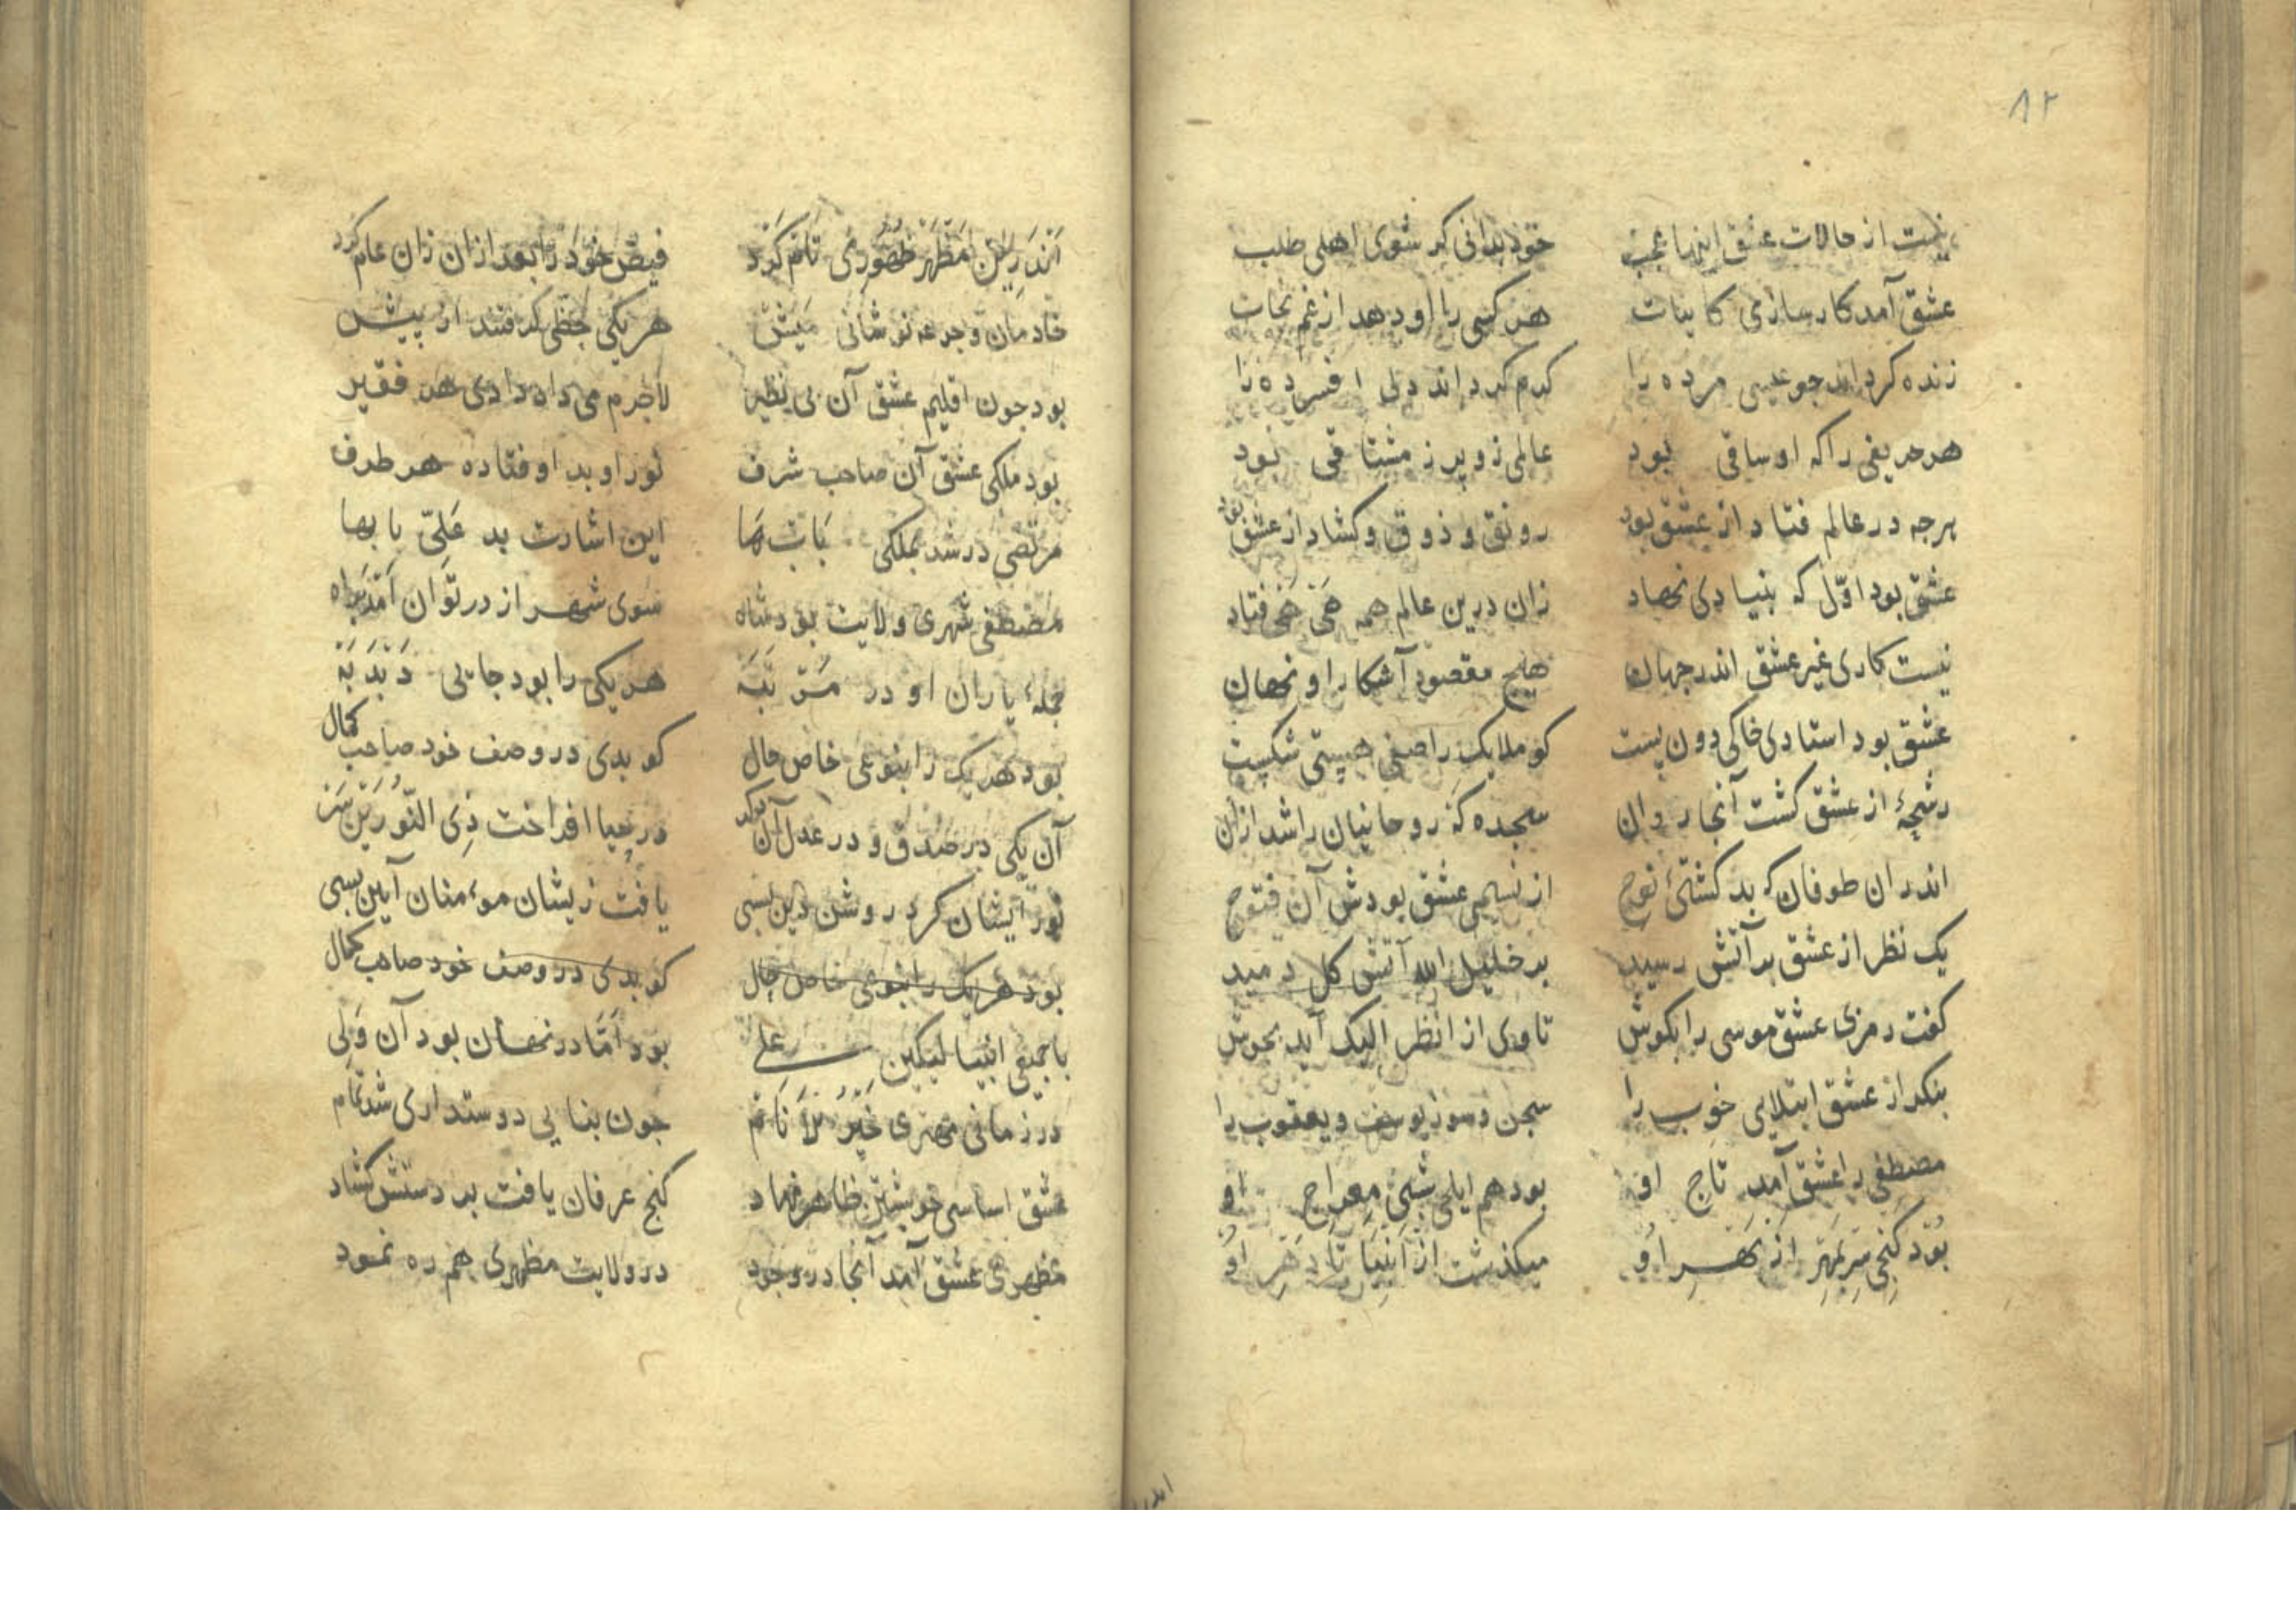 ۸۲
نیست از حالات عشق اینها عجب خود بدانی کر شوی اهلی طلب
عشق آمد کار سازی کاینات هر کسی را او دهد از غم نجات
زنده کرداند جو عیسی مرده را کرم کرداند دلی افسرده را
هر حریفی را که او ساقی بود عالمی زو پر ز مشتاقی بود
هرجه در عالم فتاد از عشق بود رونق و ذوق و کشاد از عشق بود
عشق بود اوّل که بنیادی نهاد زان درین عالم همه هَی هَی فتاد
نیست کاری غیر عشق اندر جهان هیج مقصود آشکارا و نهان
عشق بود استادی خاکی دون پست کو ملایک را صفی هستی شکست
رشحۀ از عشق کشت آنجا روان سجده که روحانیان را شد ازان
اندر ان طوفان که بد کشتئ نوح از نسیمی عشق بودش آن فتوح
یک نظر از عشق بر آتش رسید بر خلیل الله آتش کل دمید
کفت رمزی عشق موسی را بکوش تا وی از انظر الیک آید بجوش
بنکر از عشق ابتلایی خوب را سجن و سوز یوسف و یعقوب را
مصطفی را عشق آمد تاج او بود هم ایلی شبئ معراج او
بُود کنجی سَر بمُهر از بَهر او میکذشت از اَنبیَا تا دَهر اوُ
اَندَرین مَظهَر ظهُوری تام کَرد فیض خود را بعد ازان زان عام کرد
خادمان و جرعه نوشانی مَیَش هر یکی حظی کرفتند از پیش
بود جون اقلیم عشق آن بی نظیر لاجرم می داد دادی هر فقیر
بود ملکی عشق آن صاحب شرف نور او بد اوفتاده هر طرف
مرتضی در شد بملکی بَاب هَا این اشارت بد عَلِیّ با بها
مصطفی شهری ولایت بود شاه سوی شهر از در توان آمد براه
جملۀ یاران او در مَرتَبَه هر یکی را بود جایی دَبدَبَه
بود هر یک را بنوعی خاص حال کو بدی در وصف خود صاحب کمال
آن یکی در صدق و در عدل آن دکر در حیا افراخت ذِی النّورَین سَر
نور ایشان کرد روشن دین بسی یافت زیشان موءمنان آیین بسی
بود هر یک را بنوی خاص حال کو بدی در وصف خود صاحب کمال
با جمیع انبیا لیکین علی بود اَمّا در نهان بود آن وَلی
در زمانی مهتری خَیرُ الاَنام جون بنایی دوستداری شد تمام
عشق اساسی خویشتن ظاهر نهاد کنج عرفان یافت بر دستش کشاد
مظهری عشق آمد آنجا در وجود در ولایت مظهری هم ره نمود